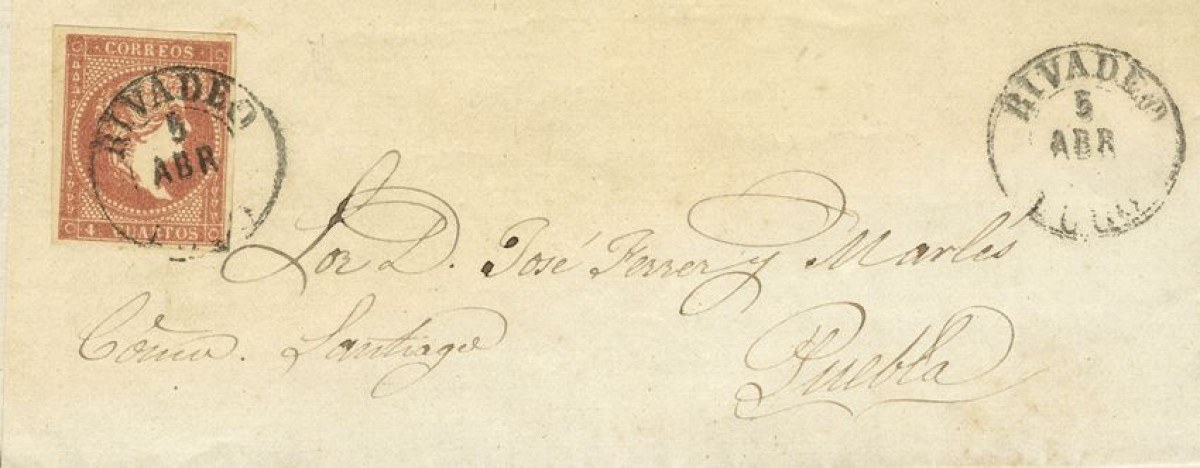 CORREOS
RIVADEO
5
ABR
4 CUARTOS
RIVADEO
5
ABR
LUGO
Sor D. José Ferrer y Marlés
Santiago
Puebla